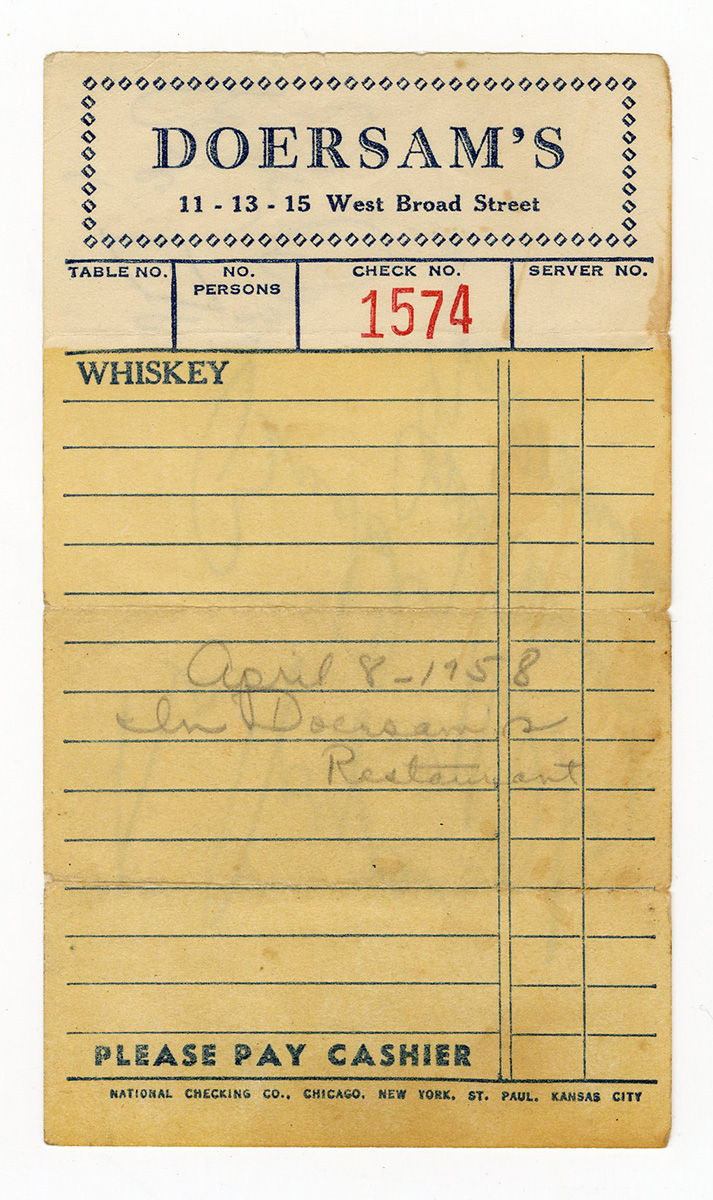 DOERSAM'S
11 - 13 - 15 West Broad Street
TABLE NO. NO. PERSONS CHECK NO. SERVER NO.
1574
WHISKEY
April 8-1958
In Doersam's
Restaurant
PLEASE PAY CASHIER
NATIONAL CHECKING CO., CHICAGO, NEW YORK, ST. PAUL, KANSAS CITY